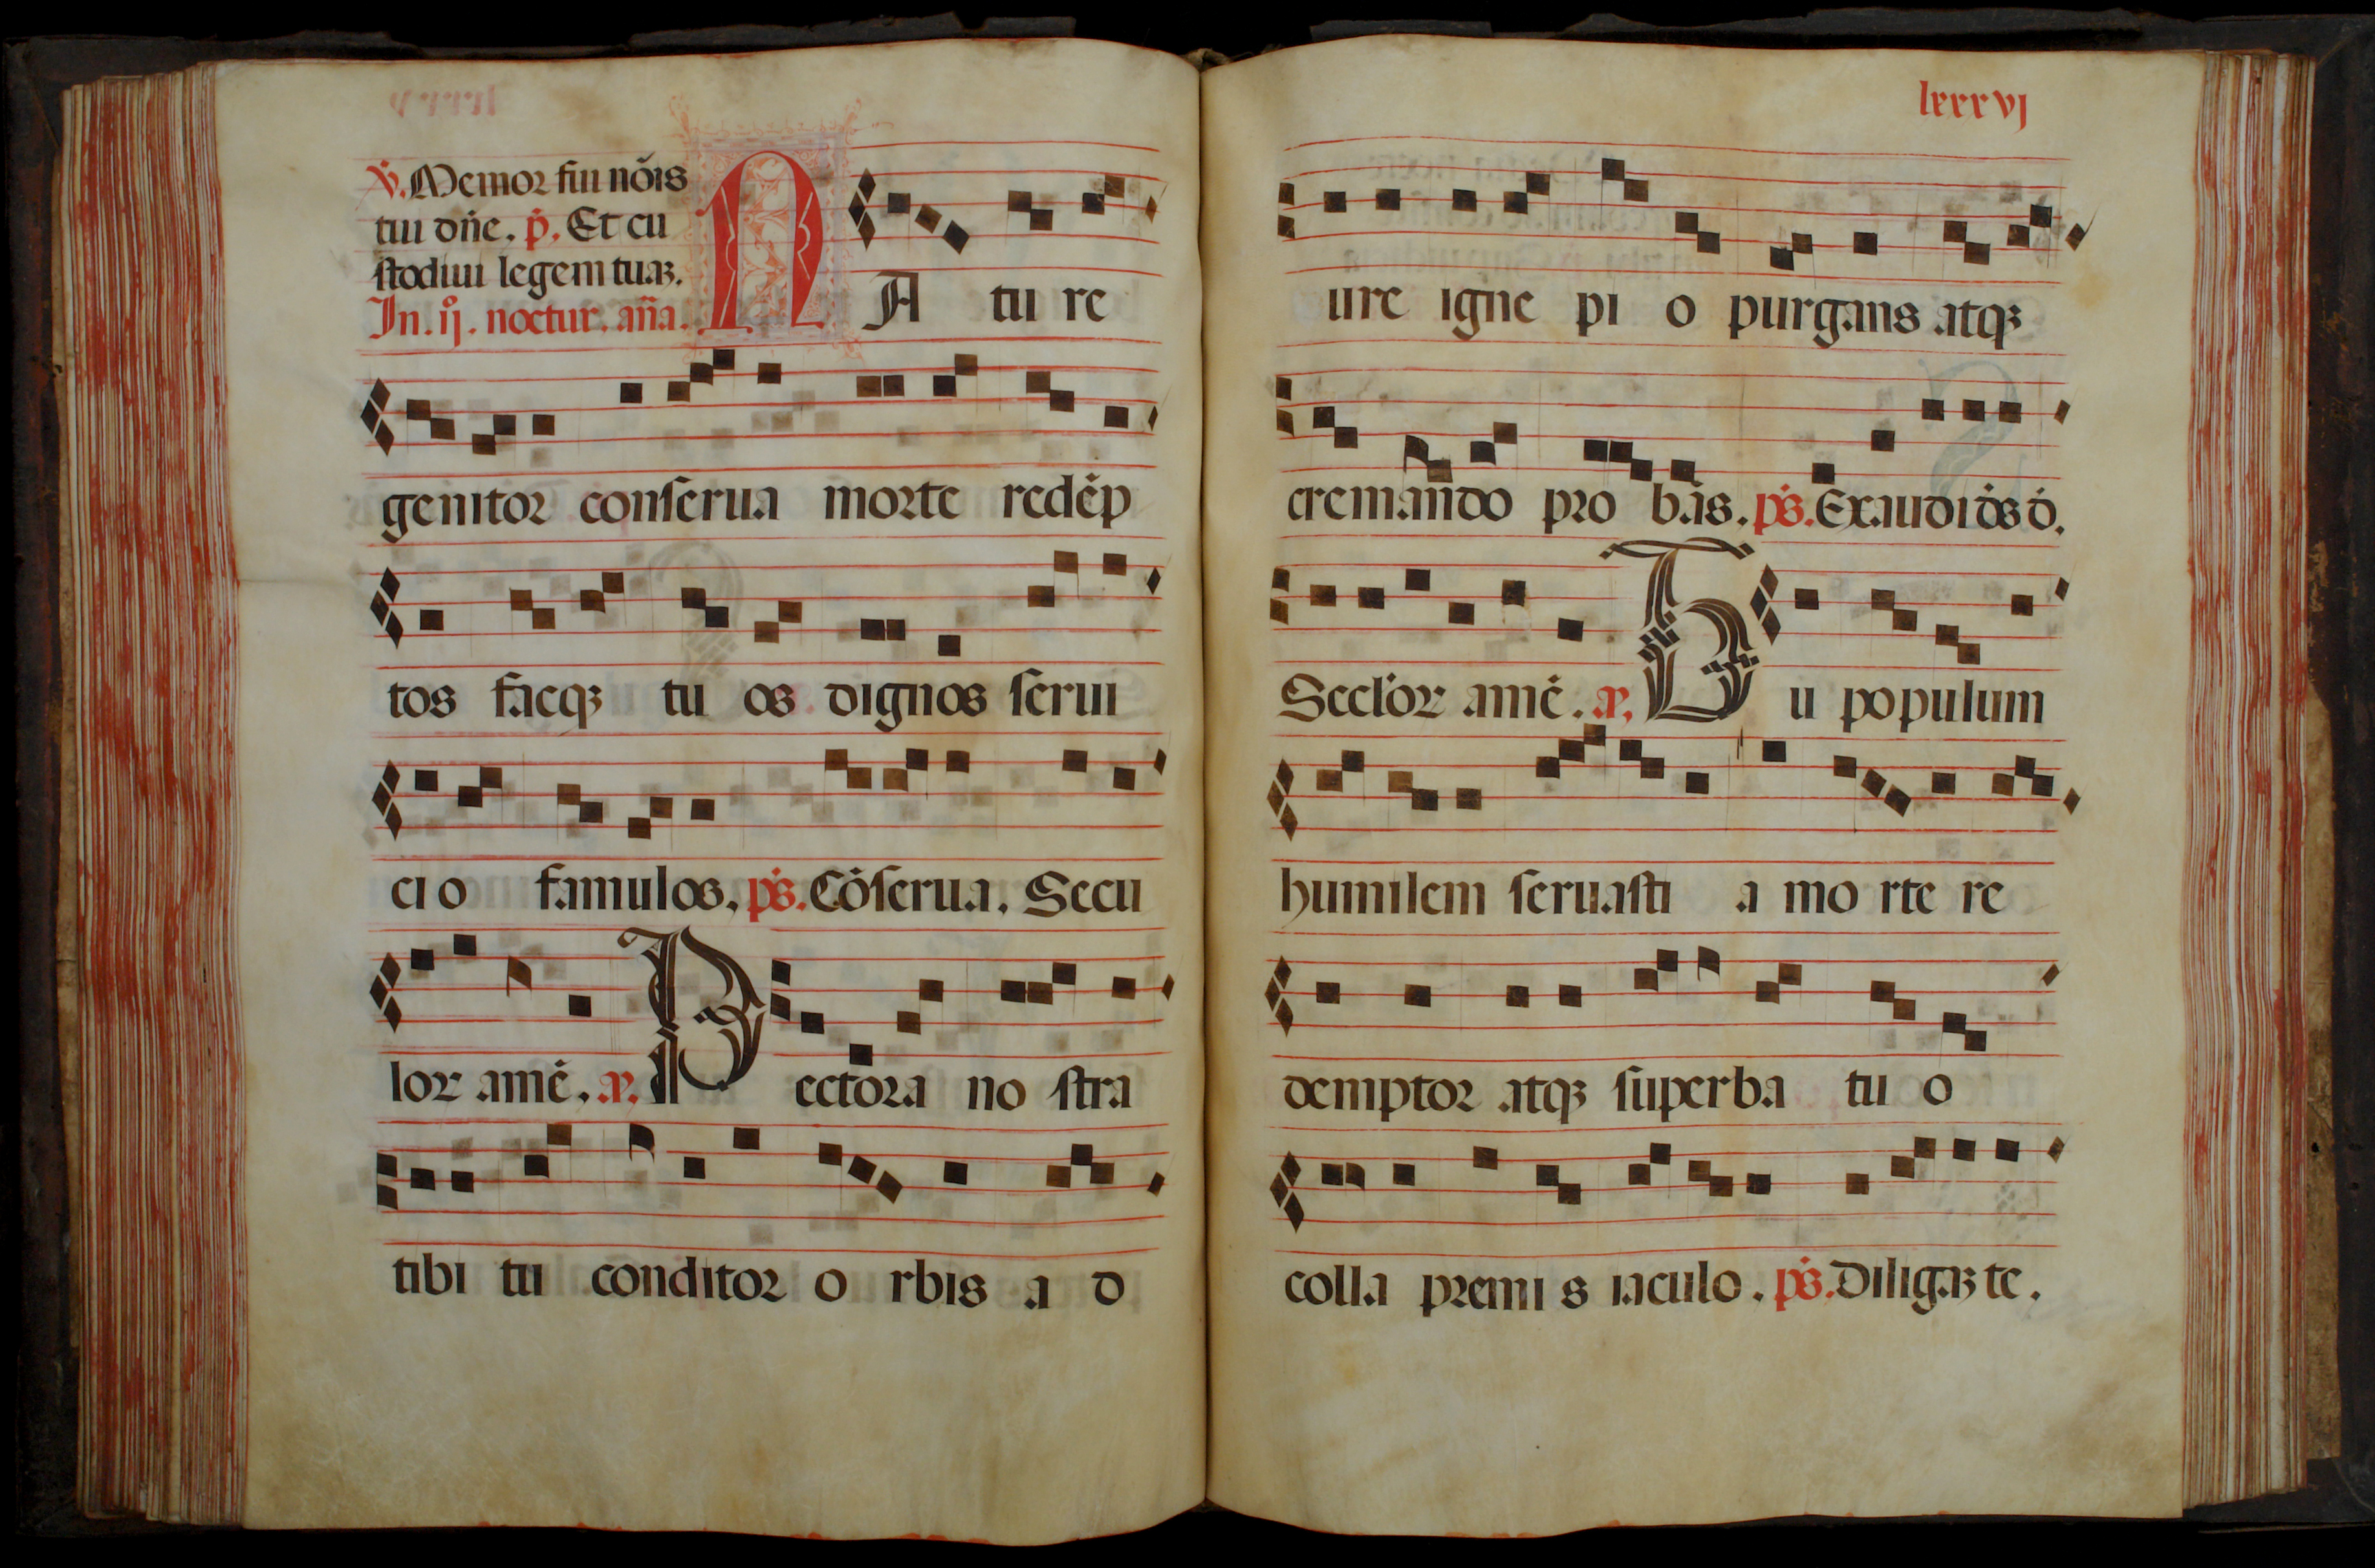 ℣. Memor fui nōis
tui dn̄e. p̄. Et cu
stodiui legem tuaꝫ.
In. ij. noctur. an̄a.
NA tu re
genitor conſerua morte redēp
tos facqꝫ tu os dignos ſerui
ci o famulos. ps̄. Cōſerua. Secu
lor amē. a. Pectora no ſtra
tibi tu conditor o rbis a d
lxxxvj
ure igne pi o purgans atqꝫ
cremando pro bas. ps̄. Exaudi ds̄ d̄.
Secl'or amē. a. Tu populum
humilem ſeruaſti a mo rte re
demptor atqꝫ ſuperba tu o
colla premi s iaculo. ps̄. Diligaꝫ te.